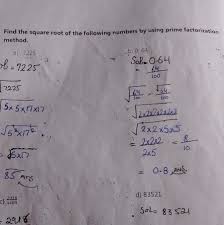 Find the square root of the following numbers by using prime factorization
method.
a) 7225
b) 0.64
Sol = 7225
√7225
√5x5x17x17
√5²x17²
= 5x17
85 Ans
c)
= 2916
Sol = 0.64
= 64/100
√64/√100
√2x2x2x2x2x2
√2x2x5x5
= 2x2x2/2x5 = 8/10
= 0.8 Ans
d) 83521
Sol = 83521